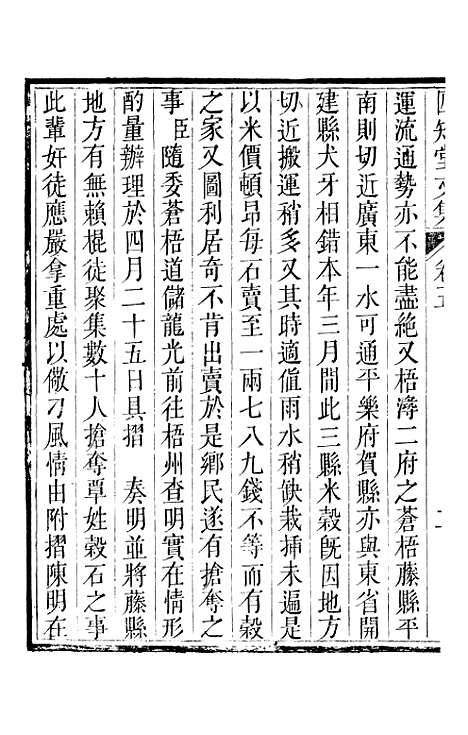 運流通勢亦不能盡絕又梧潯二府之蒼梧藤縣平
南則切近廣東一水可通平樂府賀縣亦與東省開
建縣犬牙相錯本年三月間此三縣米穀旣因地方
切近搬運稍多又其時適値雨水稍缺栽揷未遍是
以米價頓昂每石賣至一兩七八九錢不等而有穀
之家又圖利居奇不肯出賣於是鄉民遂有搶奪之
事臣隨委蒼梧道儲龍光前往梧州查明實在情形
酌量辦理於四月二十五日具摺 奏明並將藤縣
地方有無賴棍徒聚集數十人搶奪覃姓穀石之事
此輩奸徒應嚴拿重處以儆刁風情由附摺陳明在